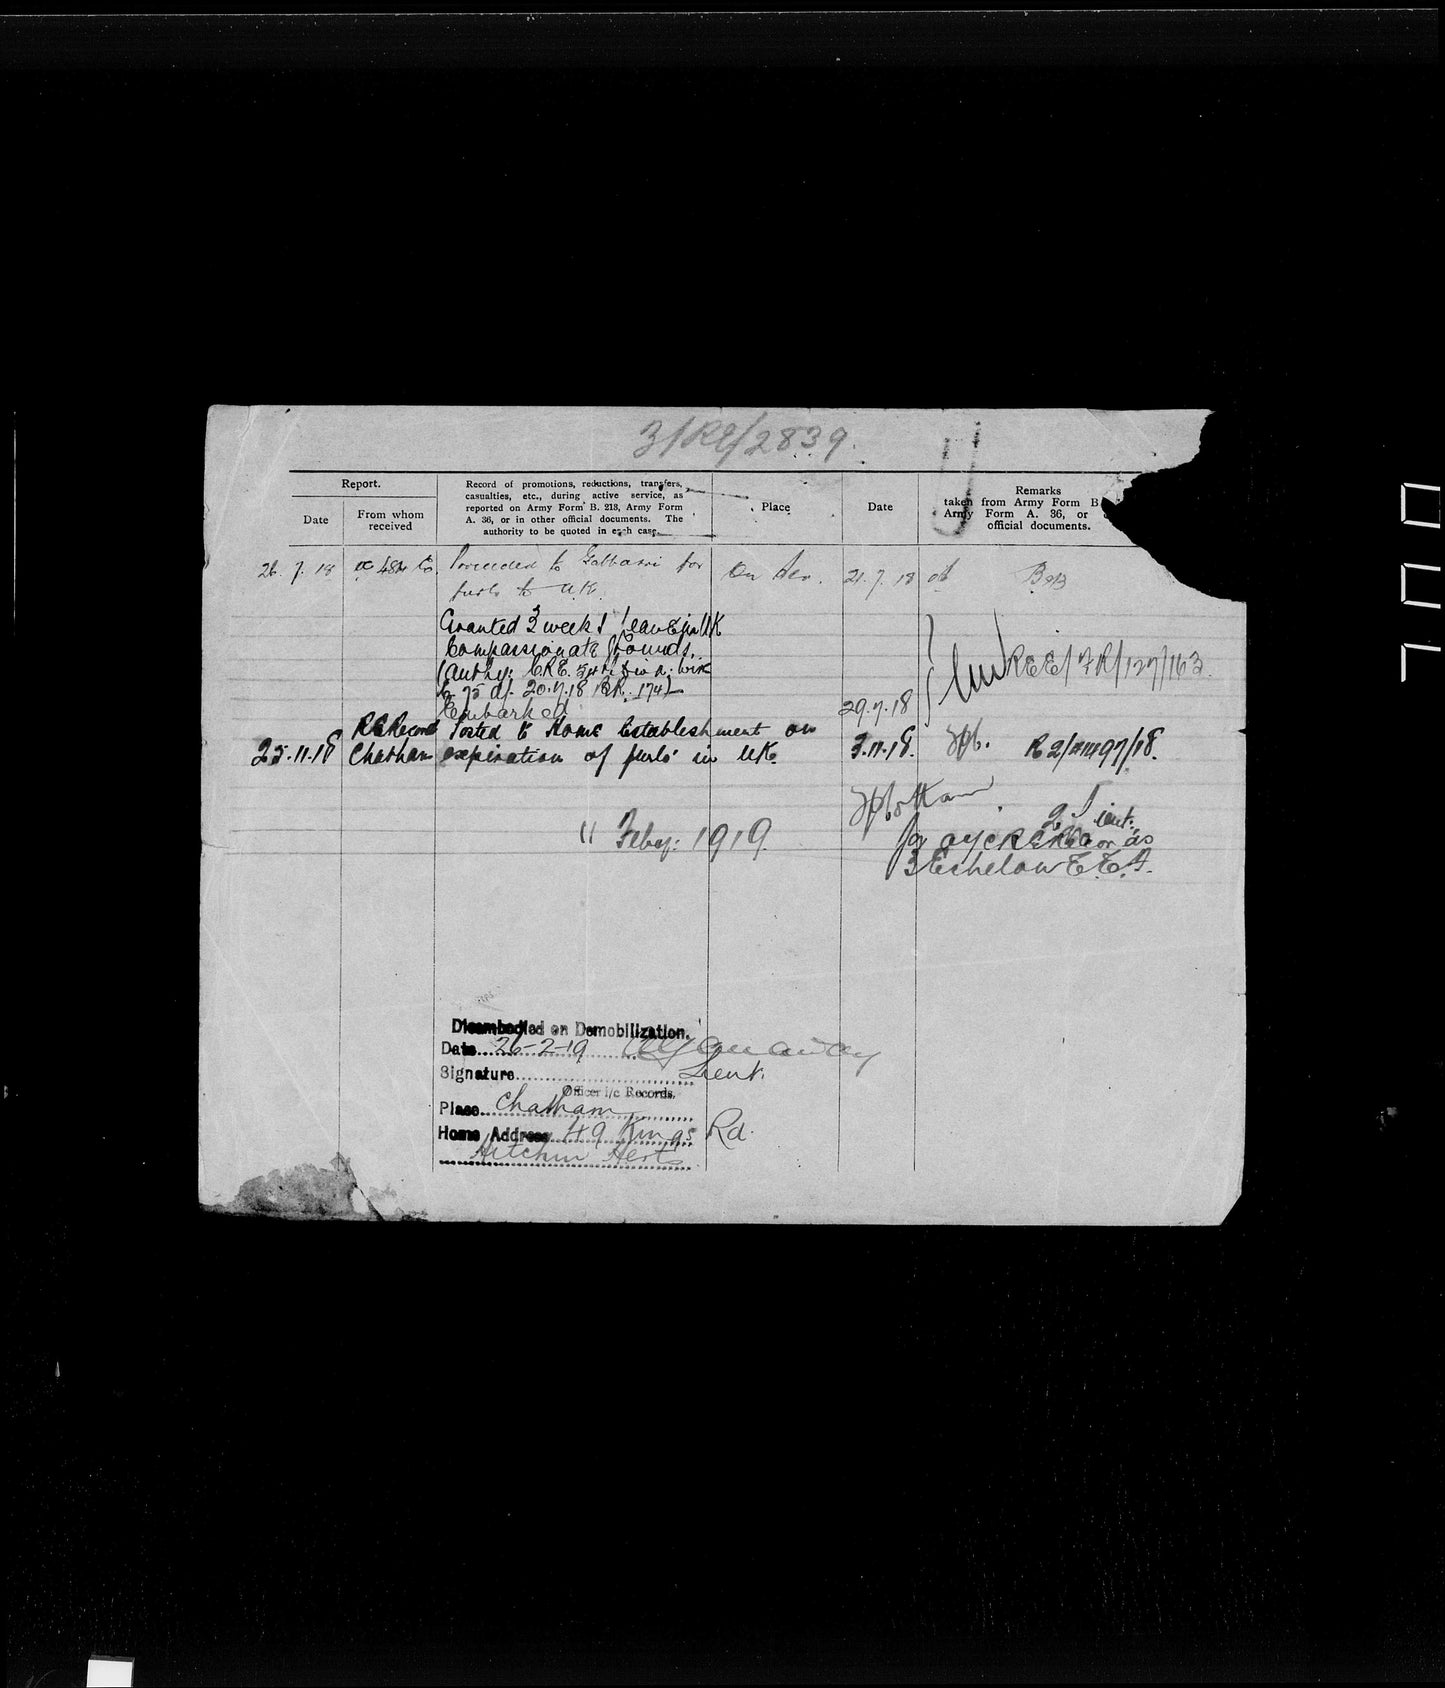 3/RE/2839.
Report.
Date
From whom
received
Record of promotions, reductions, transfers,
casualties, etc., during active service, as
reported on Army Form B. 213, Army Form
A. 36, or in other official documents. The
authority to be quoted in each case.
Place
Date
Remarks
taken from Army Form B
Army Form A. 36, or
official documents.
26.7.18
Proceeded to for
furlo to UK.
21.7.18
Granted 3 weeks leave in UK
Compassionate Grounds.
(Authy: CRE. 54th Div
20.7.18
Embarked
29.7.18
RE Record
Chatham
25.11.18
Posted to Home Establishment on
expiration of furlo in UK.
3.11.18.
11 Feby: 1919
2 Lieut.
3 Echelon E.E.F.
Disembodied on Demobilization.
Date 26-2-19
Signature Lieut.
Officer i/c Records.
Place Chatham
Home Address 49 Kings Rd
Hitchin Herts